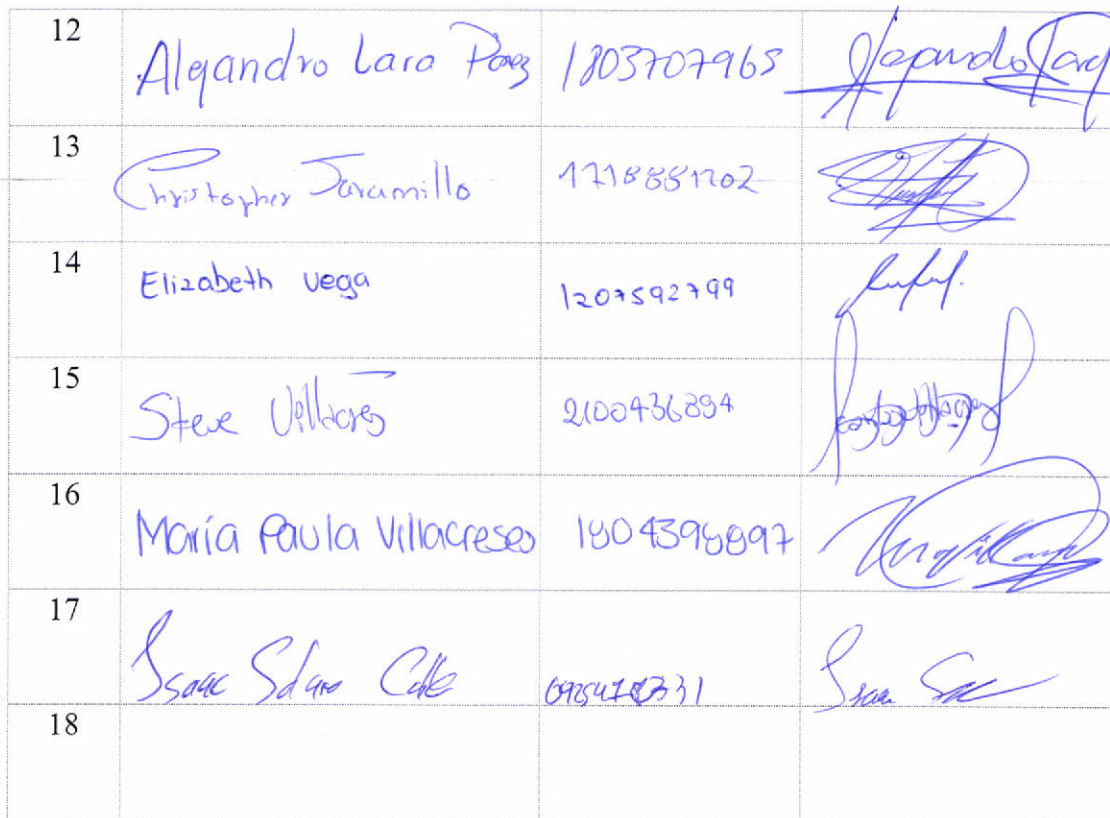 12 Alejandro Lara Pérez 1803707965 Alejandro Lara
13 Christopher Jaramillo 1718881202
14 Elizabeth Vega 1207592799
15 Steve 2100436894
16 María Paula Villacreses 1804398897
17 Isaac Calle
18